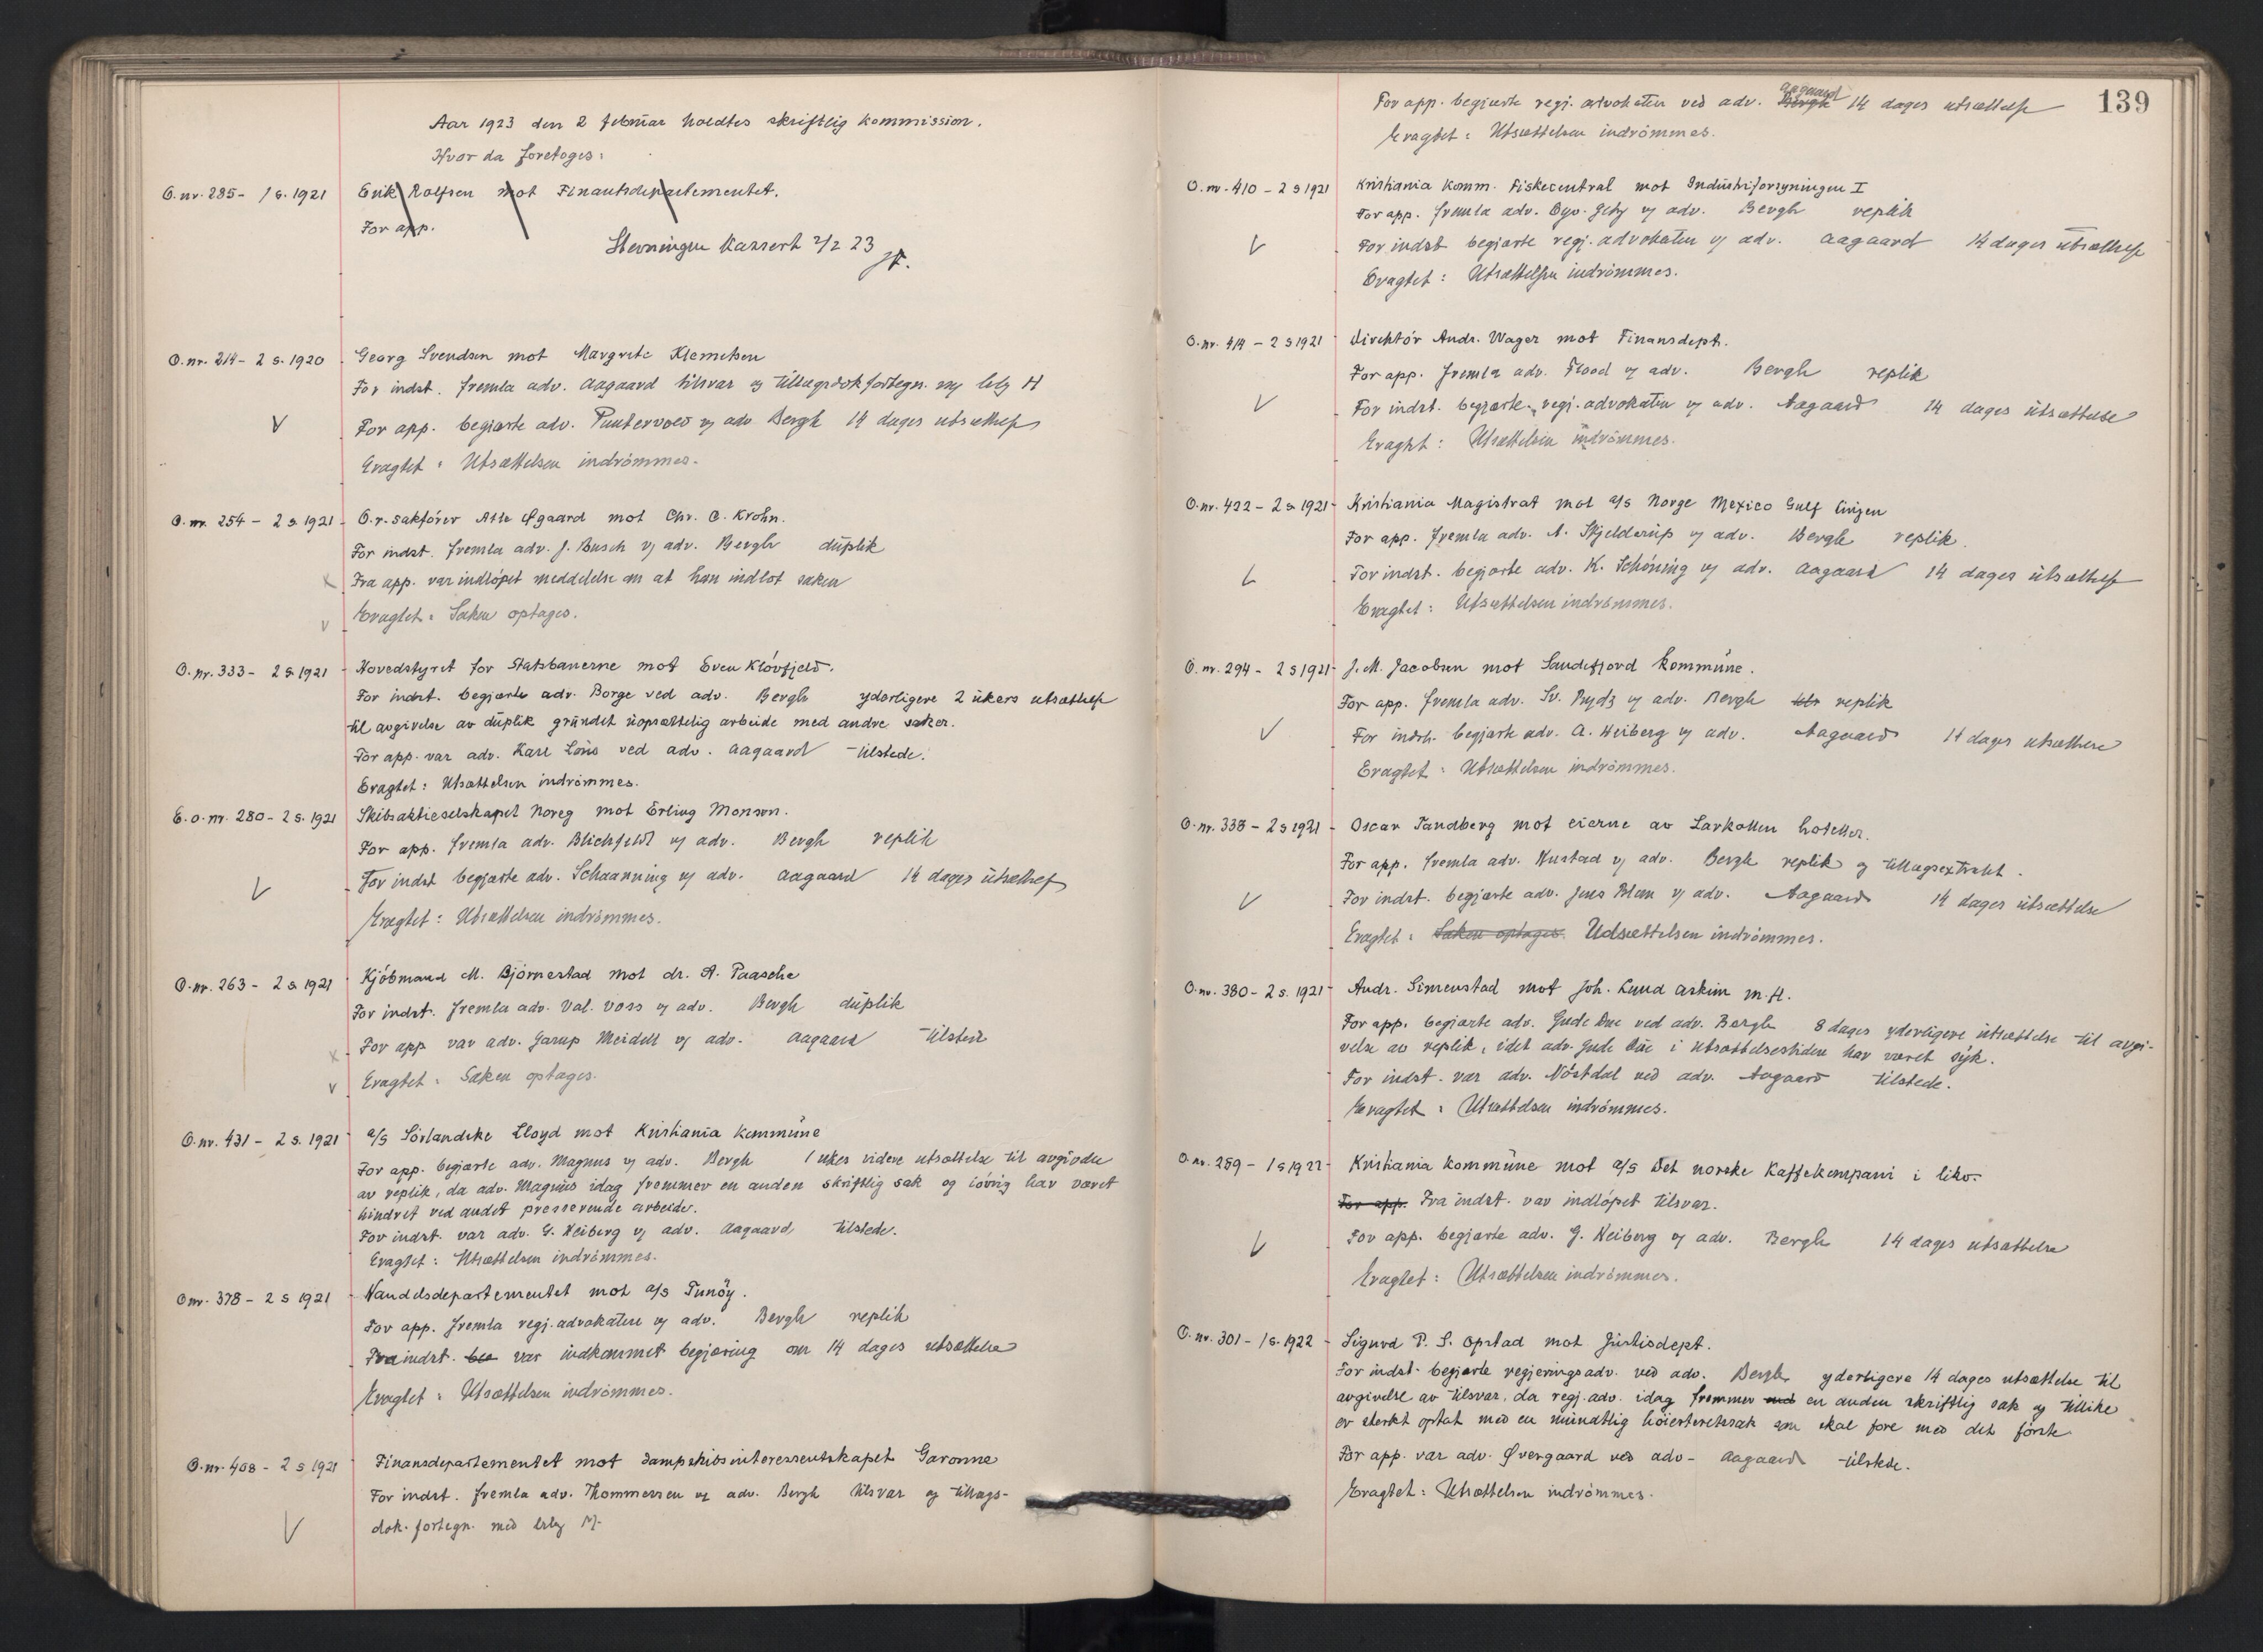 Aar 1923 den 2 februar holdtes skriftlig kommission.
Hvor da foretoges:
O.nr. 285 - 1 s. 1921 Erik Rolfsen mot Finantsdepartementet.
For app.
Stevningen kassert 2/2 23
O.nr. 214 - 2 s. 1920 Georg Svendsen mot Margrete Klemetsen
For indst. fremla adv. Aagaard tilsvar og tillægsdokfortegn. H
V For app. begjærte adv. og adv Bergh 14 dages utsættelse
Eragtet: Utsættelsen indrömmes.
O.nr. 254 - 2 s. 1921 O.r.sakförer Atle Øgaard mot Chr. C. Krohn.
For indst. fremla adv. J. Busch v/ adv. Bergh duplik
x Fra app. var indlöpet meddelelse om at han indlot saken
v Eragtet: Saken optages.
O.nr. 333 - 2 s. 1921 Hovedstyret for Statsbanerne mot Even Klövfjeld.
For indst. begjærte adv. Borge ved adv. Bergh yderligere 2 ukers utsættelse
til avgivelse av duplik grundet uopsættelig arbeide med andre saker.
For app. var adv. Karl Lous ved adv. Aagaard tilstede.
Eragtet: Utsættelsen indrömmes.
E.o.nr. 280 - 2 s. 1921 Skibsaktieselskapet Noreg mot Erling Monsen.
For app. fremla adv. Blichfeldt v/ adv. Bergh replik
V For indst begjærte adv. Schaanning v/ adv. Aagaard 14 dages utsættelse
Eragtet: Utsættelsen indrömmes.
O.nr. 263 - 2 s 1921 Kjöbmand M. Björnestad mot dr. A. Paasche
For indst. fremla adv. Val. Voss v/ adv. Bergh duplik
x For app var adv. Garup Meidell v/ adv. Aagaard tilstede
v Eragtet: Saken optages.
O.nr. 431 - 2 s. 1921 a/s Sörlandske Lloyd mot Kristiania kommune
For app. begjærte adv. Magnus v/ adv. Bergh 1 ukes videre utsættelse til avgivelse
av replik, da adv. Magnus idag fremmer en anden skriftlig sak og iövrig har været
hindret ved andet presserende arbeide.
For indst. var adv. G. Heiberg v/ adv. Aagaard tilstede.
Eragtet: Utsættelsen indrömmes.
O nr. 378 - 2 s 1921 Handelsdepartementet mot a/s Tunöy.
For app. fremla regj.advokaten v/ adv. Bergh replik
Fra indst. var indkommet begjæring om 14 dages utsættelse
Eragtet: Utsættelsen indrömmes.
O.nr. 408 - 2 s 1921 Finansdepartementet mot dampskibsinteressentskapet Garonne
For indst. fremla adv. Thommessen v/ adv. Bergh tilsvar og tillægs-
V dok. fortegn. med
139
Aagaard
For app. begjærte regj. advokaten ved adv. Bergh 14 dages utsættelse
Eragtet: Utsættelsen indrömmes.
O.nr. 410 - 2 s 1921 Kristiania komm. Fiskecentral mot Industriforsyningen I
For app. fremla adv. v/ adv. Bergh replik
V For indst begjærte regj.advokaten v/ adv. Aagaard 14 dages utsættelse
Eragtet: Utsættelsen indrömmes.
O.nr. 414 - 2 s 1921 Direktör Andr. Wager mot Finansdept.
For app. fremla adv. Flood v/ adv. Bergh replik
V For indst. begjærte regj.advokaten v/ adv. Aagaard 14 dages utsættelse
Eragtet: Utsættelsen indrömmes.
O.nr. 422 - 2 s 1921 Kristiania Magistrat mot a/s Norge Mexico Gulf Linjen
For app. fremla adv. A. Skjelderup v/ adv. Bergh replik.
V For indst. begjærte adv. K. Schöning v/ adv. Aagaard 14 dages utsættelse
Eragtet: Utsættelsen indrömmes.
O.nr. 294 - 2 s 1921 J. M. Jacobsen mot Sandefjord kommune.
For app. fremla adv. Sv. Rydz v/ adv. Bergh replik
V For indst. begjærte adv. A. Heiberg v/ adv. Aagaard 14 dages utsættelse
Eragtet: Utsættelsen indrömmes.
O.nr. 338 - 2 s 1921 Oscar Tandberg mot eierne av Larkollen hoteller.
For app. fremla adv. Hustad v/ adv. Bergh replik og tillægsextrakt.
V For indst. begjærte adv. Jens v/ adv. Aagaard 14 dages utsættelse
Eragtet: Saken optages. Udsættelsen indrömmes.
O.nr. 380 - 2 s. 1921 Andr. Simenstad mot Joh. Lund Askim m.fl.
For app. begjærte adv. Gude Due ved adv. Bergh 8 dages yderligere utsættelse til avgi-
velse av replik, idet adv. Gude Due i utsættelsestiden har været syk.
For indst. var adv. Nöstdal ved adv. Aagaard tilstede.
Eragtet: Utsættelsen indrömmes.
O.nr. 259 - 1 s 1922 Kristiania kommune mot a/s Det norske Kaffekompani i likv.
For app. Fra indst. var indlöpet tilsvar.
V For app. begjærte adv. G. Heiberg v/ adv. Bergh 14 dages utsættelse
Eragtet: Utsættelsen indrömmes.
O.nr. 301 - 1 s. 1922 Sigurd P. S. Opstad mot Justisdept.
For indst. begjærte regjeringsadv. ved adv. Bergh yderligere 14 dages utsættelse til
avgivelse av tilsvar, da regj.adv. idag fremmer med en anden skriftlig sak og tillike
er sterkt optat med en mundtlig höiesteretssak som skal fore med det förste
For app. var adv. Övergaard ved adv. Aagaard tilstede.
Eragtet: Utsættelsen indrömmes.